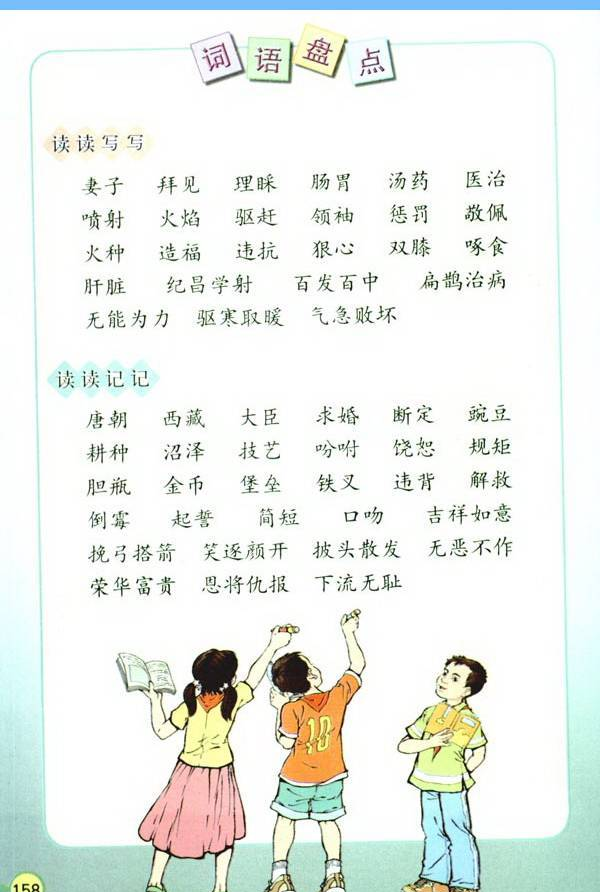 词语盘点
读读写写
妻子 拜见 理睬 肠胃 汤药 医治
喷射 火焰 驱赶 领袖 惩罚 敬佩
火种 造福 违抗 狠心 双膝 啄食
肝脏 纪昌学射 百发百中 扁鹊治病
无能为力 驱寒取暖 气急败坏
读读记记
唐朝 西藏 大臣 求婚 断定 豌豆
耕种 沼泽 技艺 吩咐 饶恕 规矩
胆瓶 金币 堡垒 铁叉 违背 解救
倒霉 起誓 简短 口吻 吉祥如意
挽弓搭箭 笑逐颜开 披头散发 无恶不作
荣华富贵 恩将仇报 下流无耻
10
158